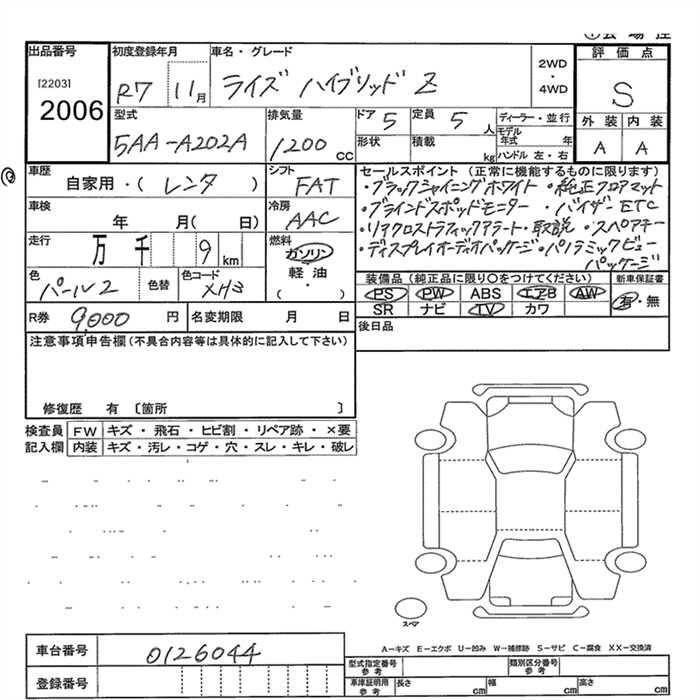 出品番号 初度登録年月 車名・グレード 評価点
[2203] 2006
R7 11月 ライズ ハイブリッド Z 2WD・4WD S
型式 排気量 ドア 5 定員 5人 ディーラー・並行 外装 内装
5AA-A202A 1200CC 形状 積載 kg モデル年式 年 ハンドル 左・右 A A
車歴 自家用・(レンタ) シフト FAT セールスポイント(正常に機能するものに限ります)
・ブラックシャイニングホワイト ・純正フロアマット
車検 年 月(日) 冷房 AAC ・ブラインドスポットモニター ・バイザー ETC
・リアクロストラフィックアラート ・取説 ・スペアキー
走行 万 千 9km 燃料 ガソリン 軽油 ・( ) ・ディスプレイオーディオパッケージ ・パノラミックビュー
パッケージ
色 パール2 色替 色コード XH3 装備品(純正品に限り〇をつけてください) 新車保証書
PS PW ABS エアB AW 有・無
SR ナビ TV カワ
R券 9,000円 名変期限 月 日 後日品
注意事項申告欄(不具合内容等は具体的に記入して下さい)
修復歴 有 〔箇所 〕
検査員 FW キズ・飛石・ヒビ割・リペア跡・×要
記入欄 内装 キズ・汚レ・コゲ・穴・スレ・キレ・破レ
スペア
A-キズ E-エクボ U-凹み W-補修跡 S-サビ C-腐食 XX-交換済
車台番号 0126044 型式指定番号 参考 類別区分番号 参考
登録番号 車庫証明用 参考 長さ cm 幅 cm 高さ cm